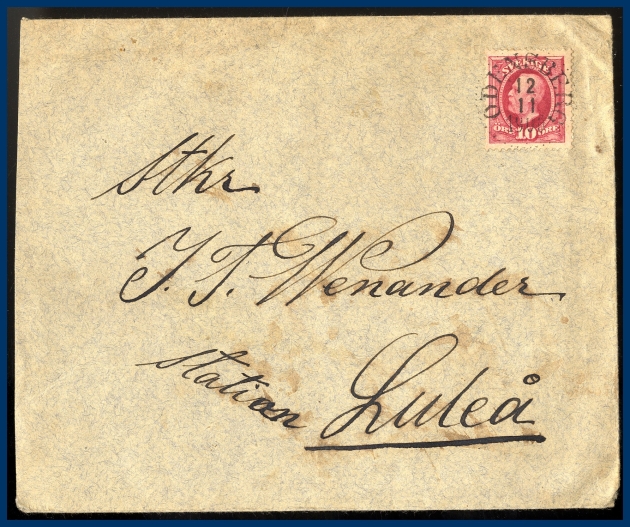 SVERIGE
ODENSBERG
12
11
ÖRE 10 ÖRE
Stkr
J. T. Wenander
Station Luleå